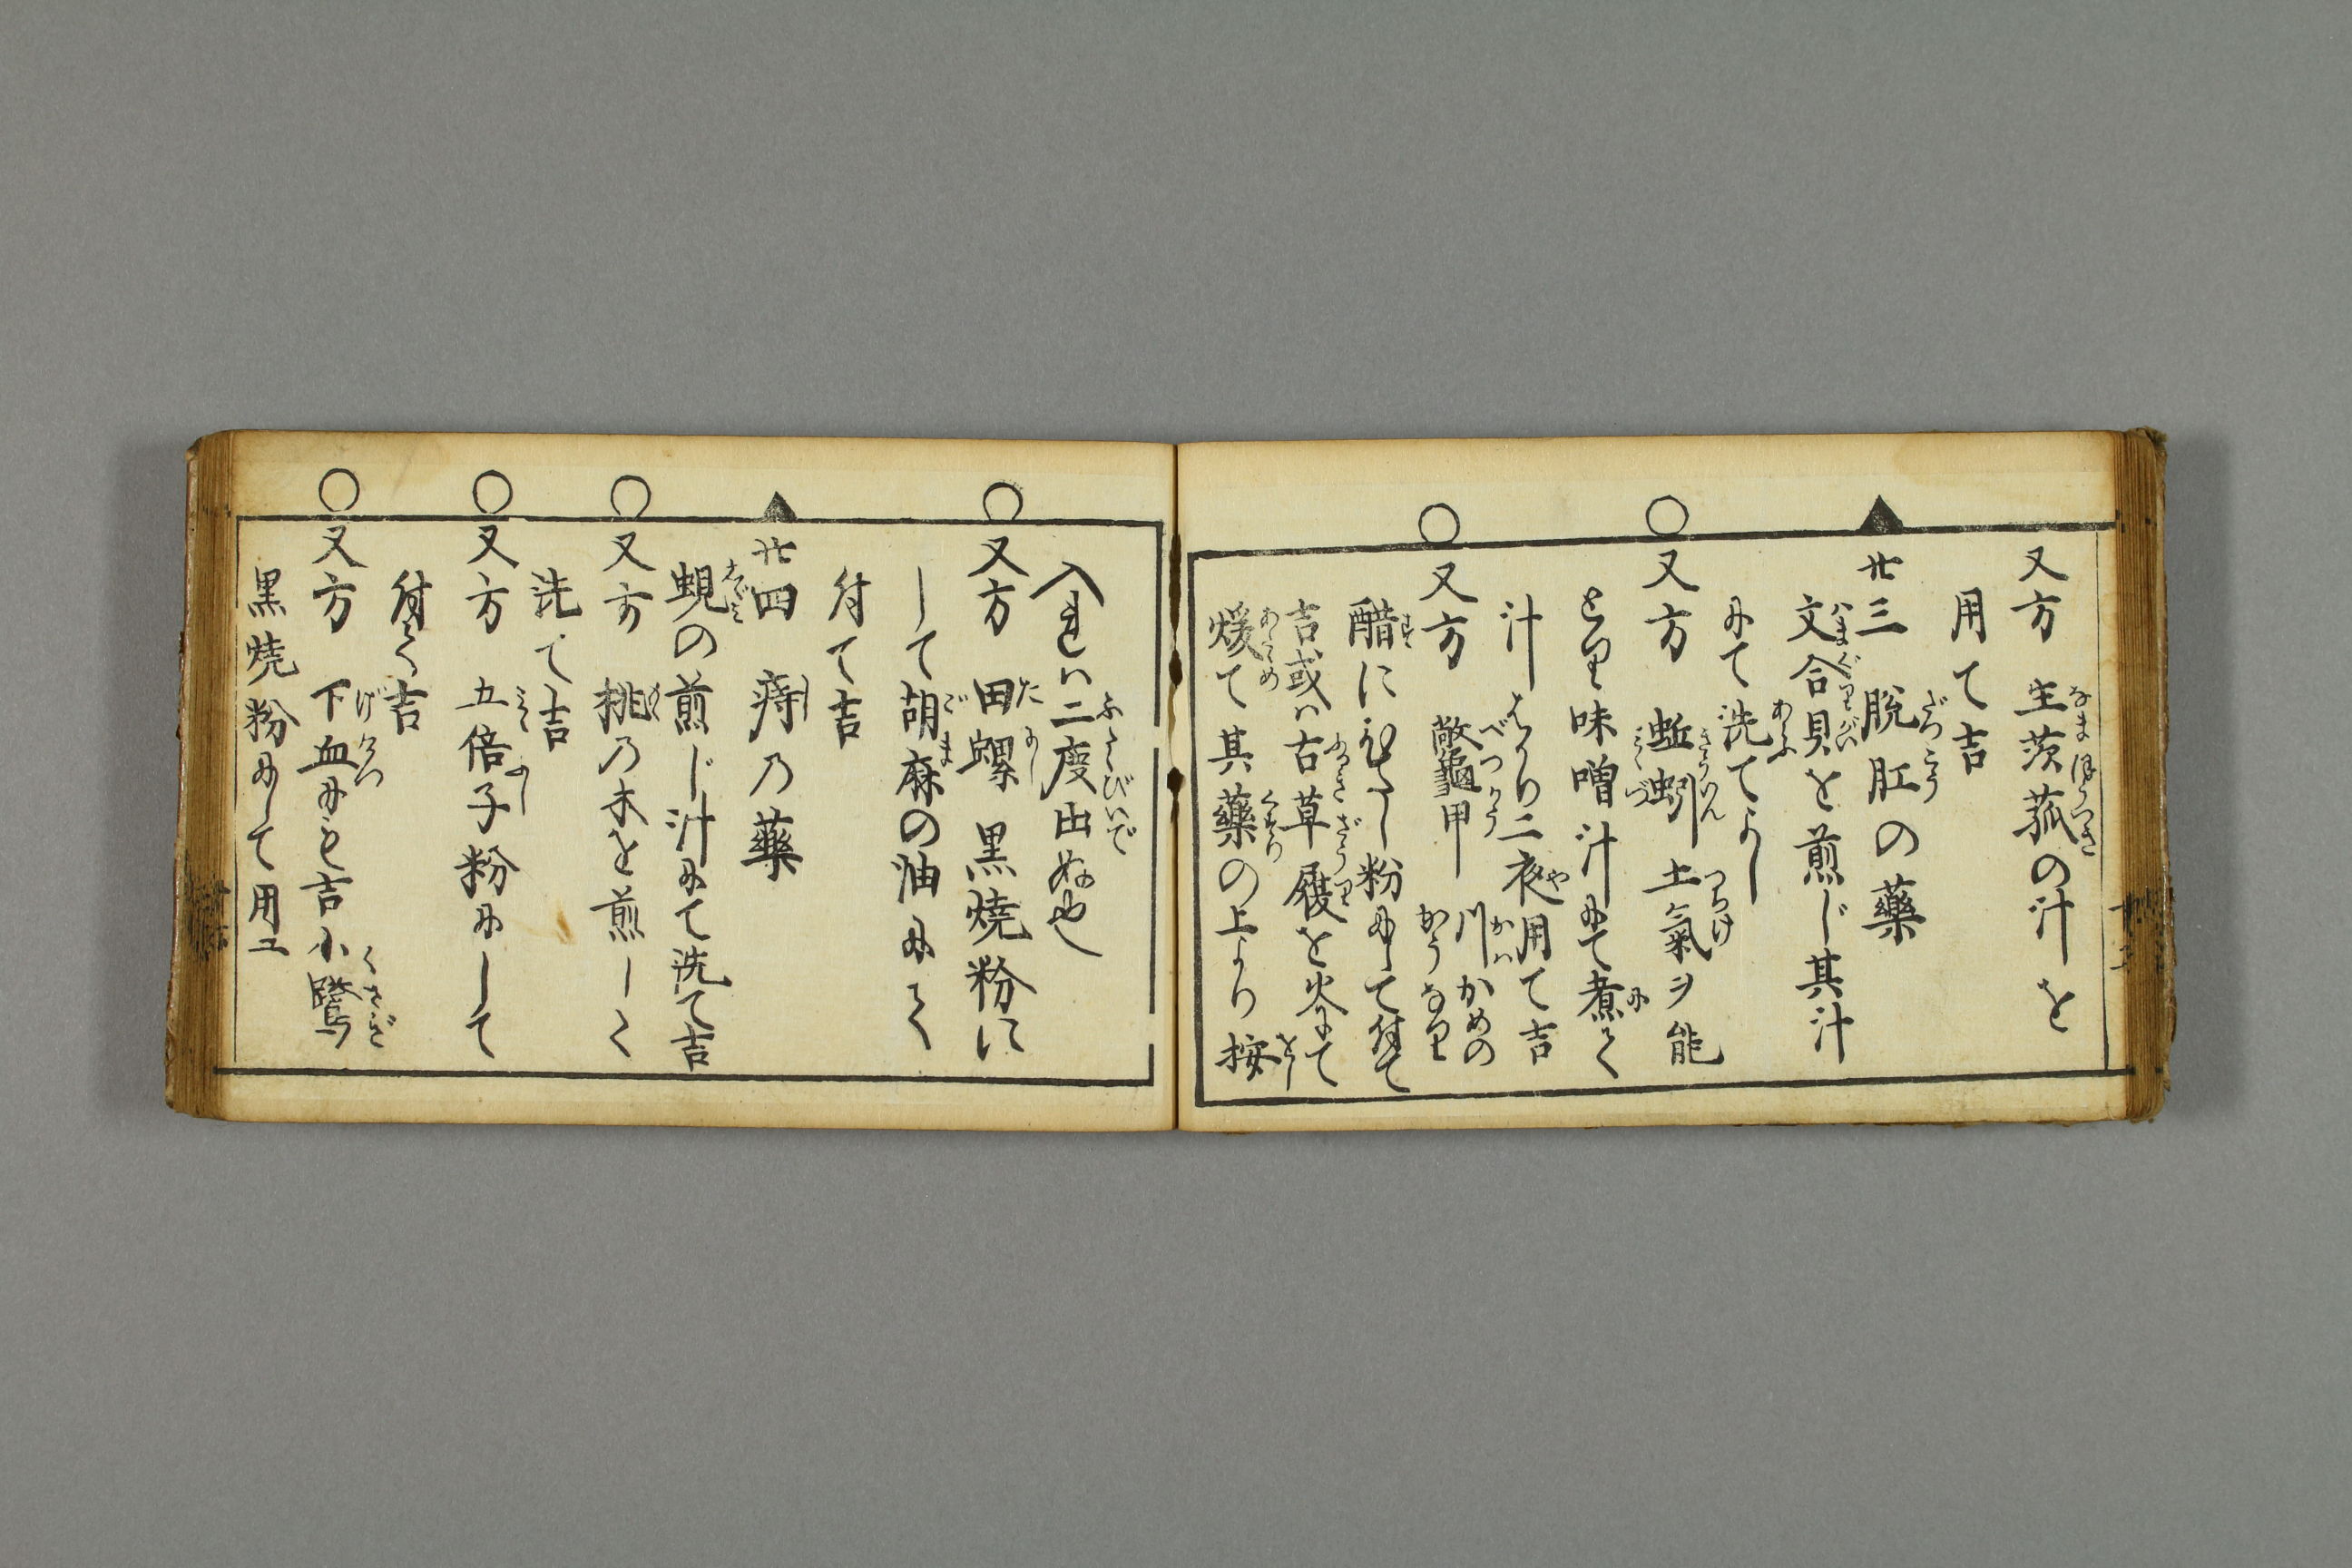 又方 生茨菰の汁を
用て吉
廿三 脱肛の藥
文合貝を煎じ其汁
にて洗てよし
○又方 蚯蚓土氣ヲ能
とり味噌汁にて煮て
汁ばかり二夜用て吉
○又方 鼈甲 川かめの かうなり
醋にひたし粉にして付て
吉或ハ古草履を火にて
煖て其藥の上より按
入れハ二度出ぬ也
○又方 田螺 黒燒粉に
して胡麻の油にて
付て吉
廿四 痔乃藥
蜆の煎じ汁にて洗て吉
○又方 桃乃木を煎じて
洗て吉
○又方 五倍子粉にして
付て吉
○又方 下血にも吉小鷺
黒燒粉にして用ユ